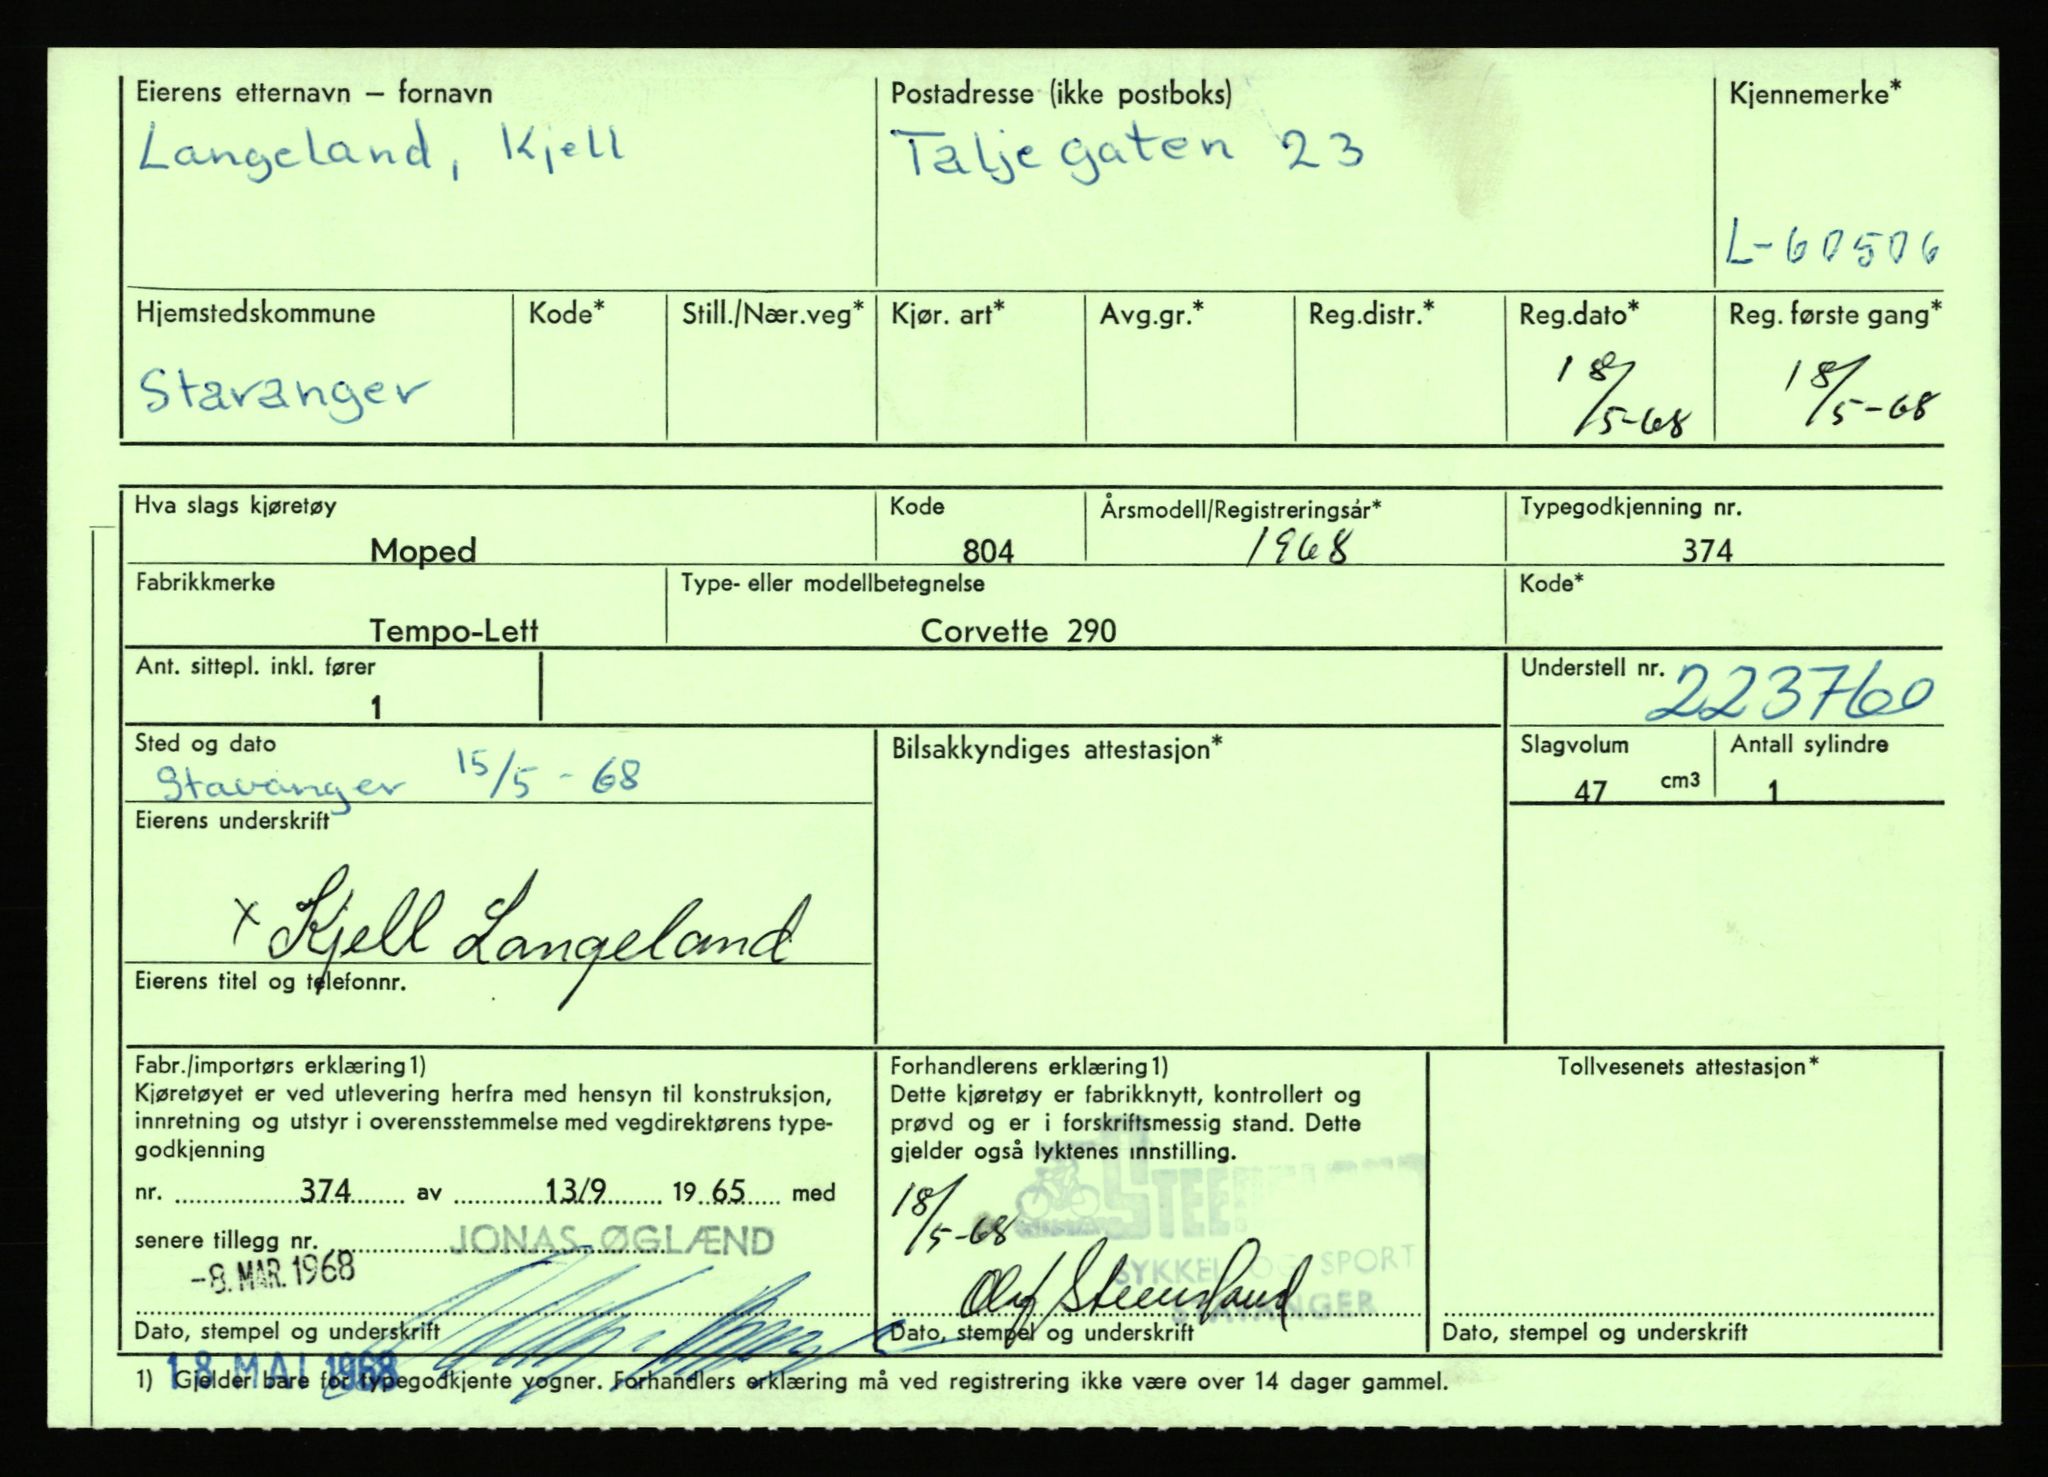 Eierens etternavn – fornavn
Langeland, Kjell
Postadresse (ikke postboks)
Taljegaten 23
Kjennemerke*
L-60506
Hjemstedskommune
Stavanger
Kode*
Still./Nær.veg*
Kjør. art*
Avg.gr.*
Reg.distr.*
Reg.dato*
18/5-68
Reg. første gang*
18/5-68
Hva slags kjøretøy
Moped
Kode
804
Årsmodell/Registreringsår*
1968
Typegodkjenning nr.
374
Fabrikkmerke
Tempo-Lett
Type- eller modellbetegnelse
Corvette 290
Kode*
Ant. sittepl. inkl. fører
1
Understell nr.
223760
Sted og dato
Stavanger 15/5-68
Bilsakkyndiges attestasjon*
Slagvolum
47 cm3
Antall sylindre
1
Eierens underskrift
x Kjell Langeland
Eierens titel og telefonnr.
Fabr./importørs erklæring 1)
Kjøretøyet er ved utlevering herfra med hensyn til konstruksjon,
innretning og utstyr i overensstemmelse med vegdirektørens type-
godkjenning
nr. 374 av 13/9 19 65 med
senere tillegg nr.
JONAS ØGLÆND
-8. MAR. 1968
Dato, stempel og underskrift
18 MAI 1968
Forhandlerens erklæring 1)
Dette kjøretøy er fabrikknytt, kontrollert og
prøvd og er i forskriftsmessig stand. Dette
gjelder også lyktenes innstilling.
18/5-68
SYKKEL OG SPORT
STAVANGER
Olaf Steensland
Dato, stempel og underskrift
Tollvesenets attestasjon*
Dato, stempel og underskrift
1) Gjelder bare for typegodkjente vogner. Forhandlers erklæring må ved registrering ikke være over 14 dager gammel.